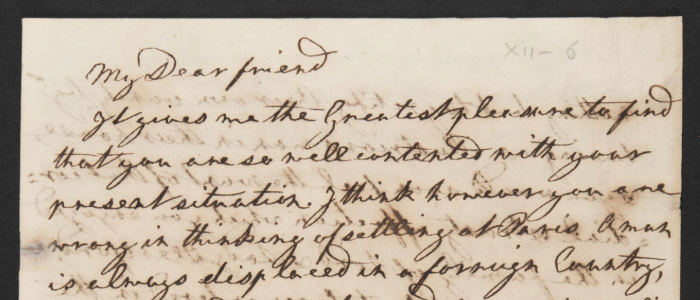 XII- 6
My Dear friend
It gives me the Greatest pleasure to find
that you are so well contented with your
present situation. I think however you are
wrong in thinking of settling at Paris. A man
is always displaced in a forreign Country,